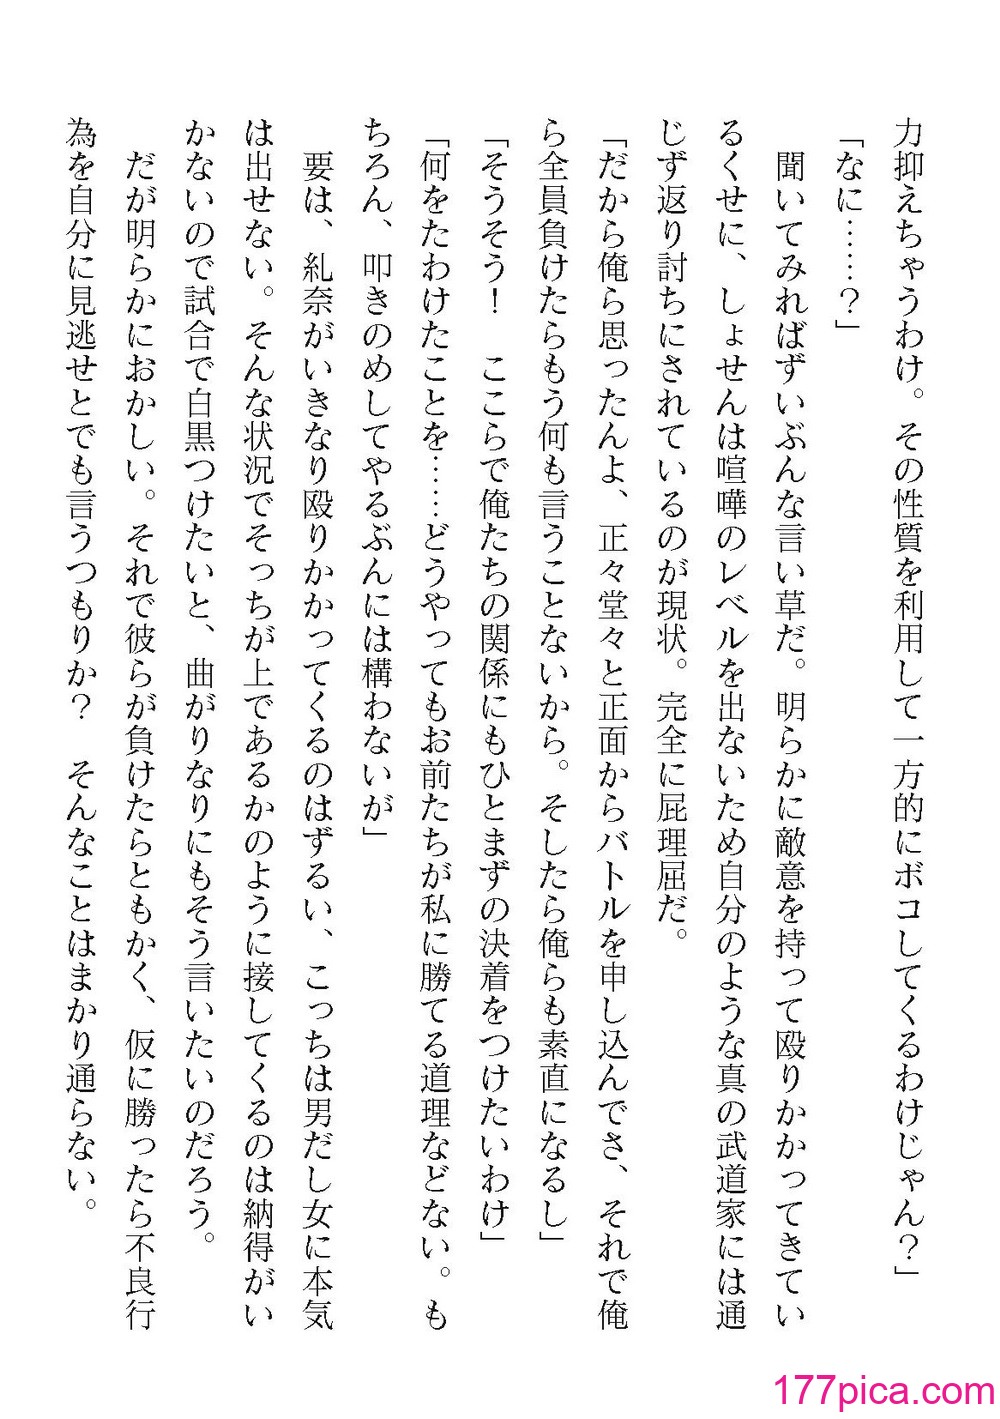 力抑えちゃうわけ。その性質を利用して一方的にボコしてくるわけじゃん？」
「なに……？」
　聞いてみればずいぶんな言い草だ。明らかに敵意を持って殴りかかってきてい
るくせに、しょせんは喧嘩のレベルを出ないため自分のような真の武道家には通
じず返り討ちにされているのが現状。完全に屁理屈だ。
「だから俺ら思ったんよ、正々堂々と正面からバトルを申し込んでさ、それで俺
ら全員負けたらもう何も言うことないから。そしたら俺らも素直になるし」
「そうそう！　ここらで俺たちの関係にもひとまずの決着をつけたいわけ」
「何をたわけたことを……どうやってもお前たちが私に勝てる道理などない。も
ちろん、叩きのめしてやるぶんには構わないが」
　要は、糺奈がいきなり殴りかかってくるのはずるい、こっちは男だし女に本気
は出せない。そんな状況でそっちが上であるかのように接してくるのは納得がい
かないので試合で白黒つけたいと、曲がりなりにもそう言いたいのだろう。
　だが明らかにおかしい。それで彼らが負けたらともかく、仮に勝ったら不良行
為を自分に見逃せとでも言うつもりか？　そんなことはまかり通らない。
177pica.com